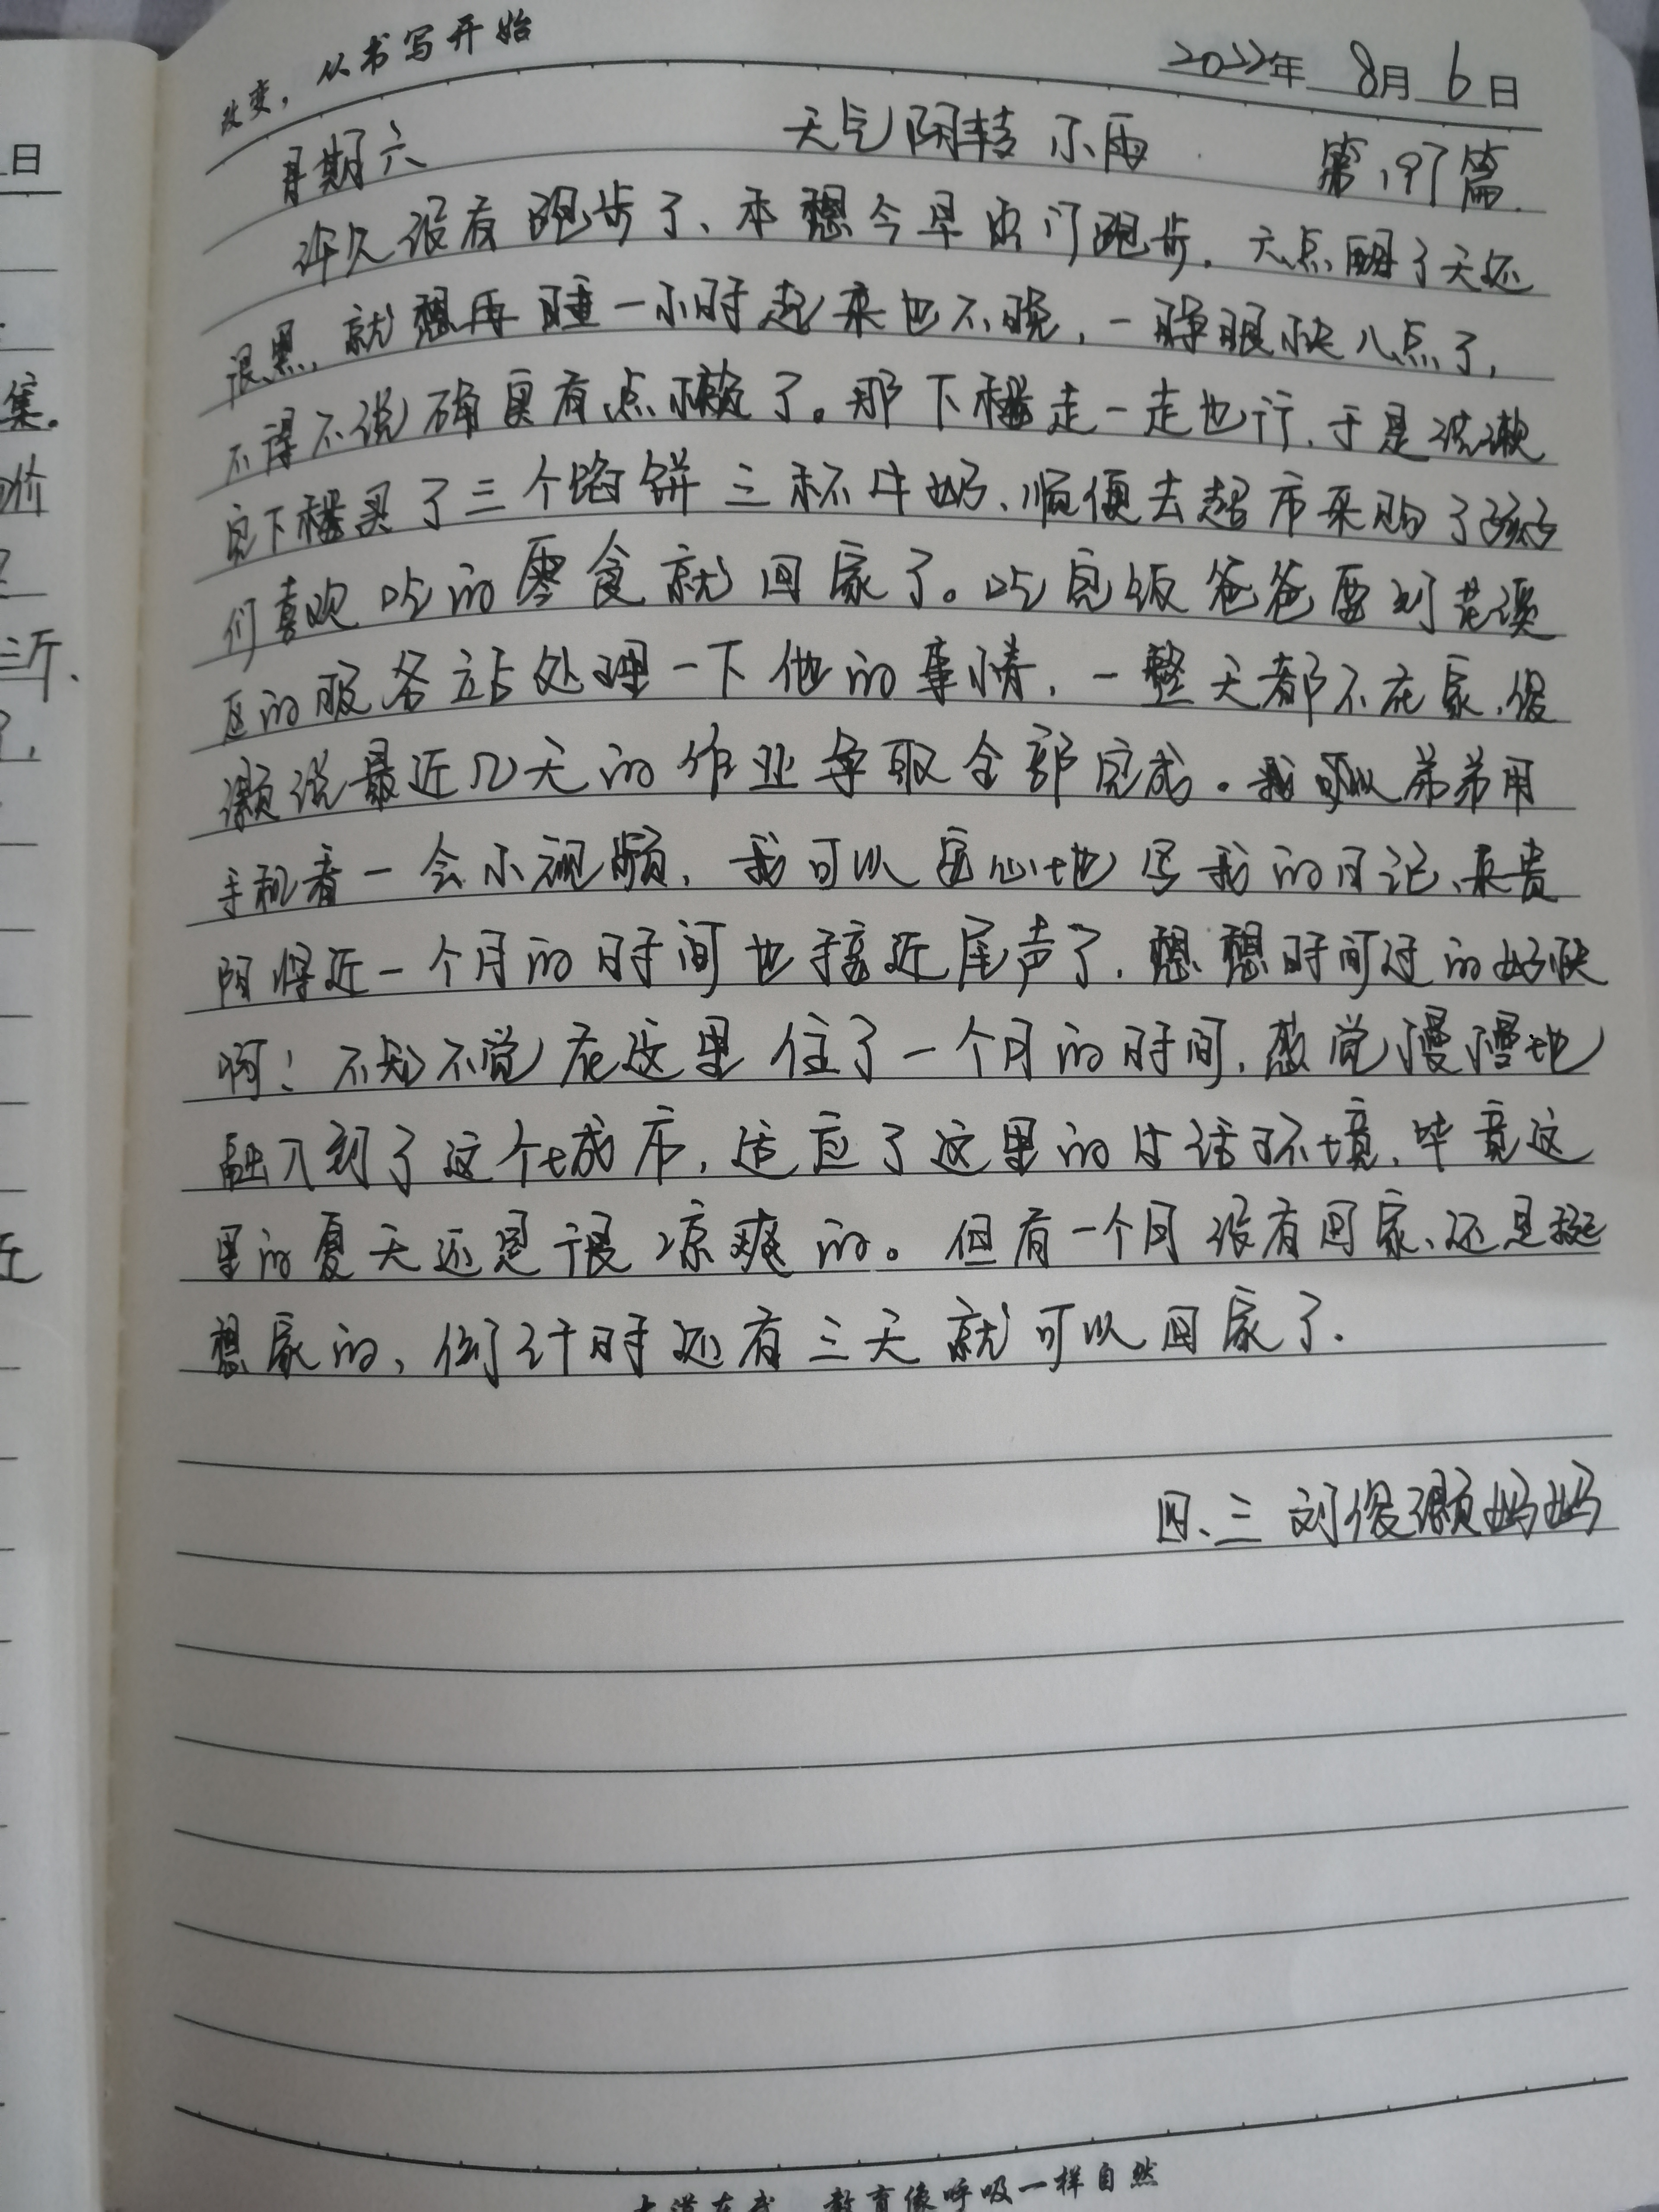 改变，从书写开始
2022年 8月 6日
星期六 天气阴转小雨 第197篇
许久没有跑步了、本想今早出门跑步. 六点醒了天还
很黑, 就想再睡一小时起来也不晚, 一睁眼快八点了,
不得不说确实有点懒了。那下楼走一走也行. 于是洗漱
完下楼买了三个馅饼三杯牛奶、顺便去超市采购了孩子
们喜欢吃的零食就回家了。吃完饭爸爸要到花溪
区的服务站处理一下他的事情, 一整天都不在家, 俊
灏说最近几天的作业争取全部完成。我可以弟弟用
手机看一会小视频, 我可以安心地写我的日记、来贵
阳将近一个月的时间也接近尾声了, 想想时间过的好快
啊! 不知不觉在这里住了一个月的时间, 感觉慢慢地
融入到了这个城市, 适应了这里的生活环境, 毕竟这
里的夏天还是很凉爽的。但有一个月没有回家、还是挺
想家的, 倒计时还有三天就可以回家了.
四、三 刘俊灏妈妈
教育像呼吸一样自然
日
集。
价
三斤、